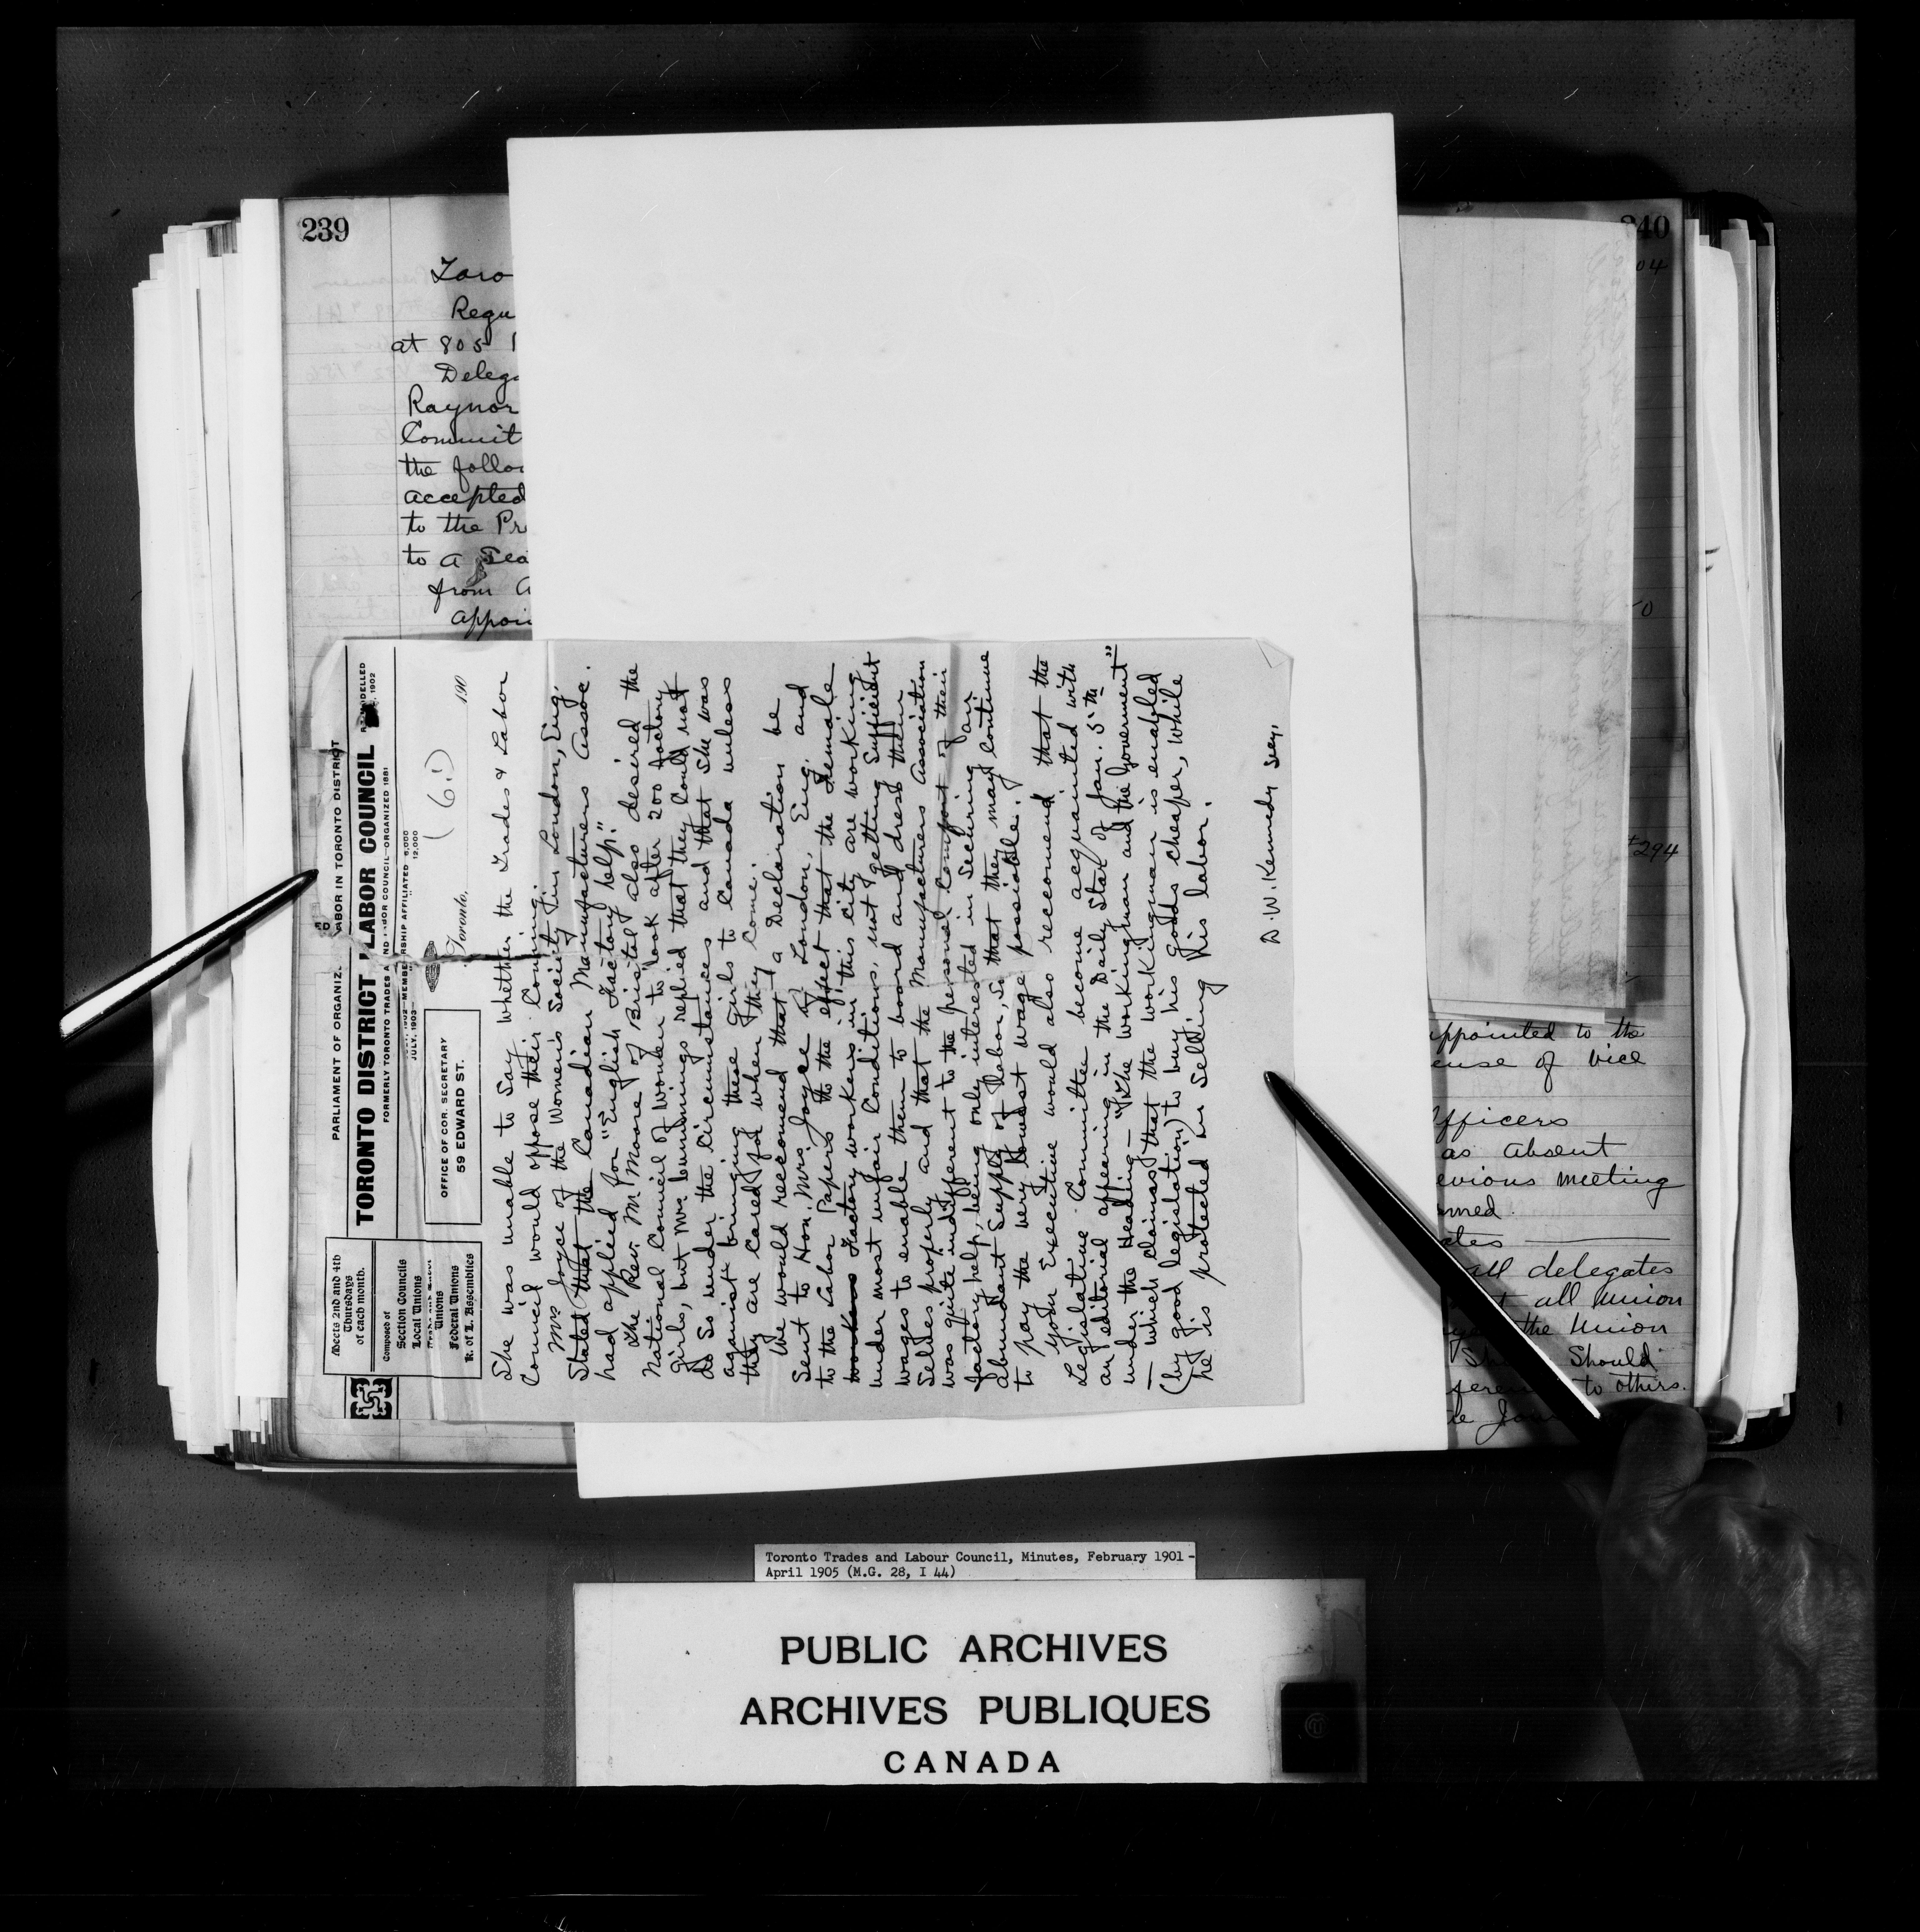 239
Toro
Regu
at 805
Delega
Raynor
Committ
the follow
accepted
to the Pr
to a Sea
from a
appoin
PARLIAMENT OF ORGANIZ. ED LABOR IN TORONTO DISTRICT
TORONTO DISTRICT LABOR COUNCIL
FORMERLY TORONTO TRADES AND LABOR COUNCIL-ORGANIZED 1881
REMODELLED
1902
1902-MEMBERSHIP AFFILIATED 6,000
JULY, 1903- 12,000
Meets 2nd and 4th
Thursdays
of each month.
Composed of
Section Councils
Local Unions
Unions
Federal Unions
K. of L. Assemblies
OFFICE OF COR. SECRETARY
59 EDWARD ST.
Toronto, 190
(6.)
She was unable to Say whether the Trades & Labor
Council would oppose their Coming.
Mrs Joyce of the Women's Society in London, Eng,
Stated that the Canadian Manufacturers Assoc.
had applied for "English Factory help."
The Rev. Mr Moore of Bristol also desired the
National Council of Women to look after 200 factory
girls, but Mrs Cummings replied that they could not
do So under the Circumstances and that She was
against bringing these Girls to Canada unless
they are Cared for when they Come.
We would recomend that a Declaration be
Sent to Hon. Mrs. Joyce of London, Eng, and
to the Labor Papers to the effect that the Female
Factory workers in this city are working
under most unfair Conditions, not getting Sufficient
wages to enable them to board and dress them
Selves properly and that the Manufacturers Association
was quite indifferent to the personal Comfort of their
factory help, being only interested in Securing an
abundant Supply of Labor, So that they may Continue
to pay the very lowest wage possiable.
Your Executive would also recomend that the
Legislative Committee become acquainted with
an editorial appearing in the Daily Star of Jan. 5th
under the Heading — "The Workingman and the Goverment"
— which claims that the workingman is enabled
(by good legislation) to buy his goods cheaper, while
he is protected in Selling his labor.
D. W. Kennedy Secy,
240
04
0
$294
appointed to the
ense of Vice
Officers
as absent
evious meeting
rmed.
ates
all delegates
all Union
the Union
Should
to others.
Toronto Trades and Labour Council, Minutes, February 1901 -
April 1905 (M.G. 28, I 44)
PUBLIC ARCHIVES
ARCHIVES PUBLIQUES
CANADA